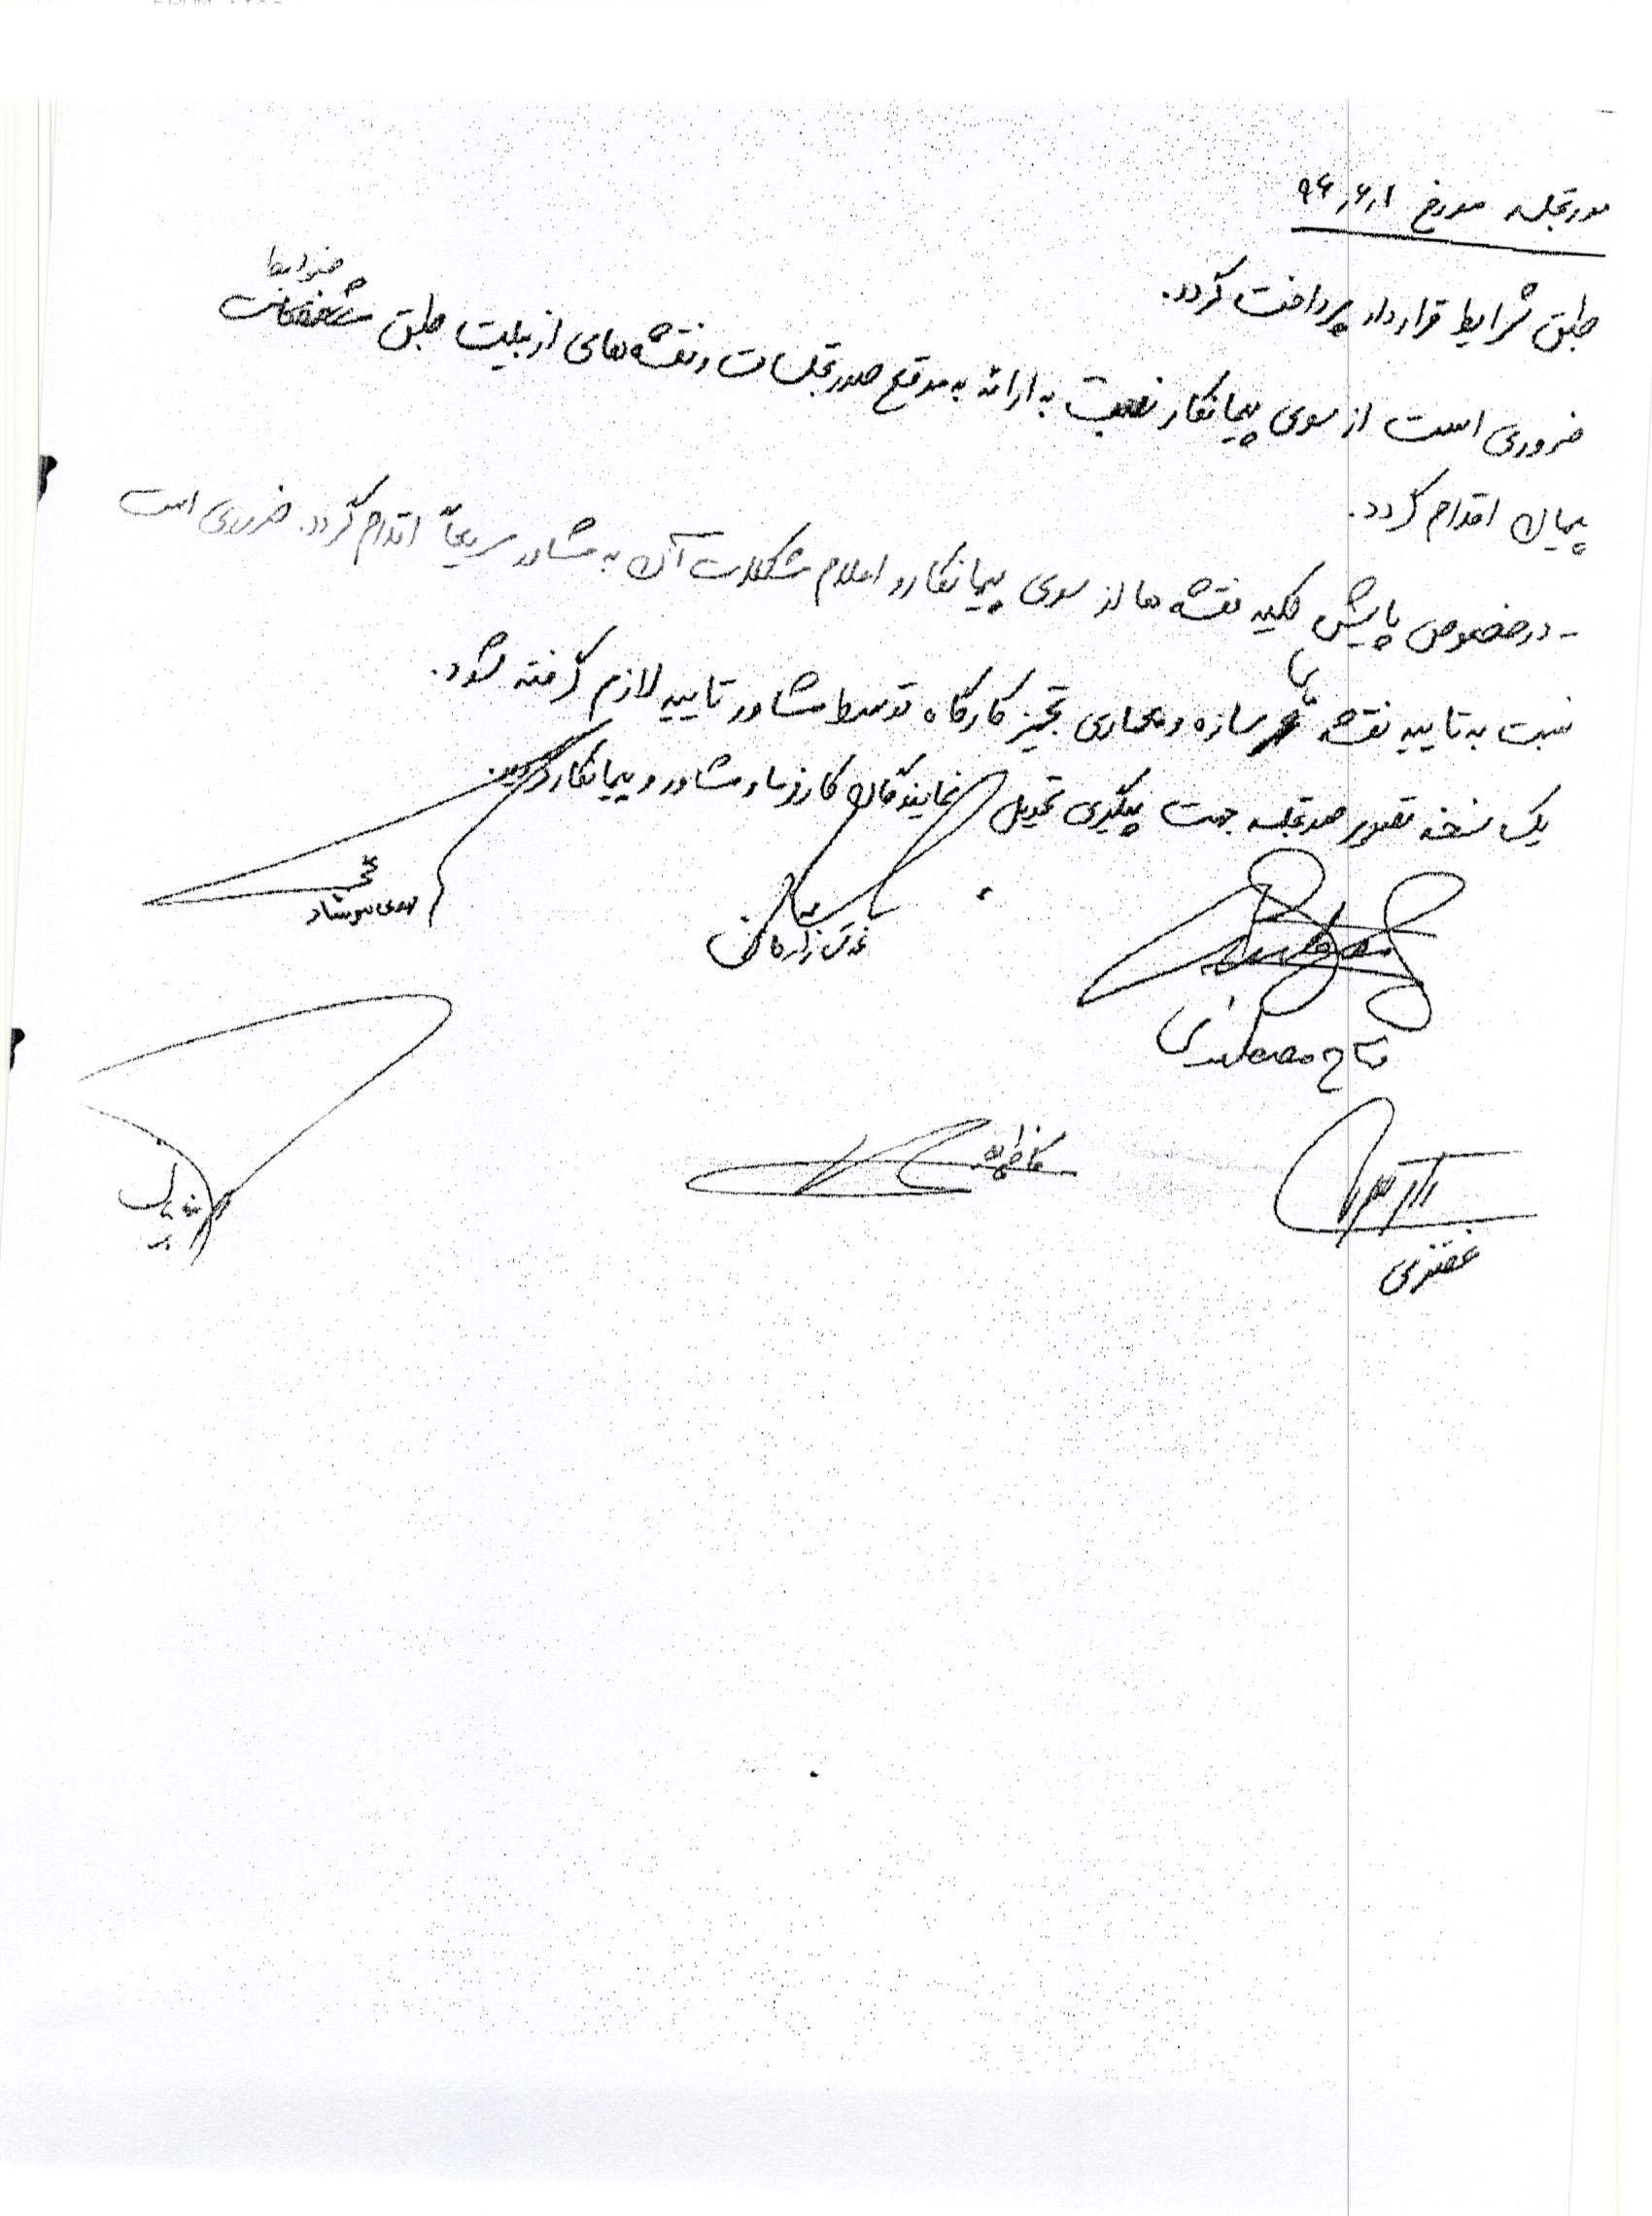 صورتجلسه مورخ ۹۶٫۶٫۱
طبق شرایط قرارداد پرداخت گردد.
ضروری است از سوی پیمانکار نسبت به ارائه به موقع صورتجلسات و نقشه‌های ازبیلت طبق ضوابط
پیمان اقدام گردد.
- درخصوص پایش کلیه نقشه ها از سوی پیمانکار و اعلام مشکلات آن به مشاور سریعاً اقدام گردد. ضروری است
نسبت به تایید نقشه های سازه و معماری تجهیز کارگاه توسط مشاور تاییه لازم گرفته شود.
یک نسخه تصویر صورتجلسه جهت پیگیری تحویل نمایندگان کارفرما و مشاور و پیمانکار گردید.
غضنفری